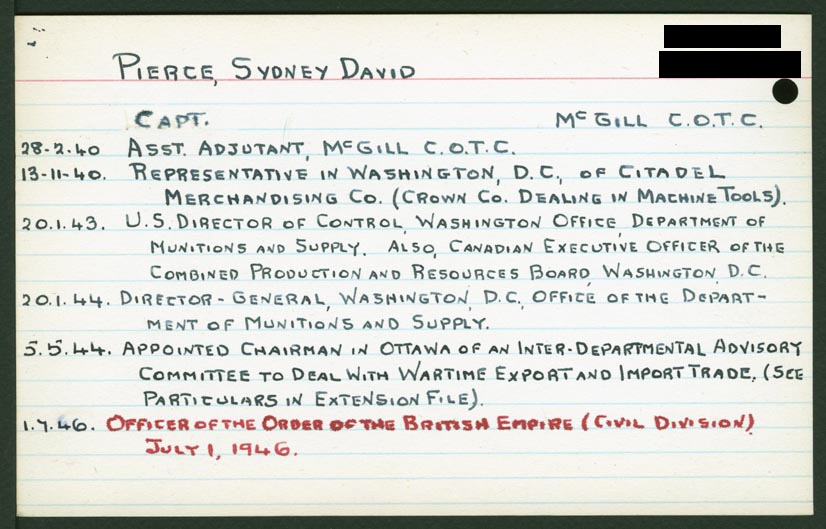 PIERCE, SYDNEY DAVID
CAPT. McGILL C.O.T.C.
28-2-40 ASST. ADJUTANT, McGILL C.O.T.C.
13-11-40. REPRESENTATIVE IN WASHINGTON, D.C., OF CITADEL
MERCHANDISING CO. (CROWN CO. DEALING IN MACHINE TOOLS).
20.1.43. U.S. DIRECTOR OF CONTROL, WASHINGTON OFFICE, DEPARTMENT OF
MUNITIONS AND SUPPLY. ALSO, CANADIAN EXECUTIVE OFFICER OF THE
COMBINED PRODUCTION AND RESOURCES BOARD, WASHINGTON, D.C.
20.1.44. DIRECTOR-GENERAL, WASHINGTON, D.C. OFFICE OF THE DEPART-
MENT OF MUNITIONS AND SUPPLY.
5.5.44. APPOINTED CHAIRMAN IN OTTAWA OF AN INTER-DEPARTMENTAL ADVISORY
COMMITTEE TO DEAL WITH WARTIME EXPORT AND IMPORT TRADE. (SEE
PARTICULARS IN EXTENSION FILE).
1.7.46. OFFICER OF THE ORDER OF THE BRITISH EMPIRE (CIVIL DIVISION)
JULY 1, 1946.